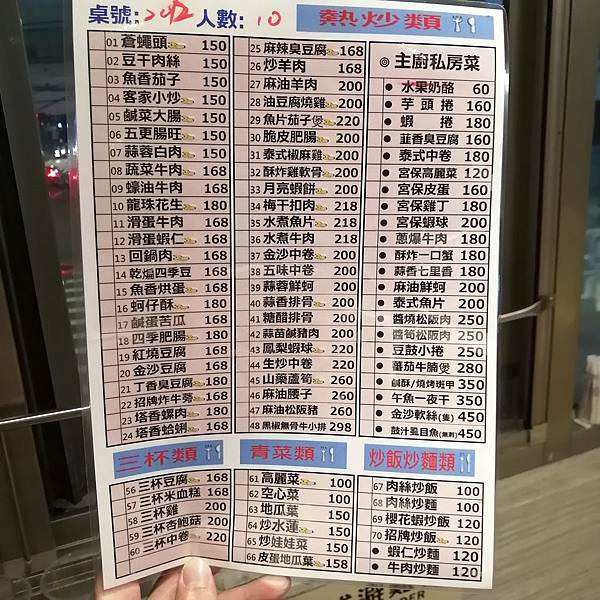 桌號: 242 人數: 10 熱炒類
01 蒼蠅頭 150
02 豆干肉絲 150
03 魚香茄子 150
04 客家小炒 150
05 鹹菜大腸 150
06 五更腸旺 150
07 蒜蓉白肉 150
08 蔬菜牛肉 168
09 蠔油牛肉 168
10 龍珠花生 180
11 滑蛋牛肉 168
12 滑蛋蝦仁 168
13 回鍋肉 168
14 乾煸四季豆 168
15 魚香烘蛋 168
16 蚵仔酥 180
17 鹹蛋苦瓜 168
18 四季肥腸 180
19 紅燒豆腐 168
20 金沙豆腐 168
21 丁香臭豆腐 180
22 招牌炸牛蒡 168
23 塔香螺肉 180
24 塔香蛤蜊 168
25 麻辣臭豆腐 168
26 炒羊肉 168
27 麻油羊肉 200
28 油豆腐燒雞 200
29 魚片茄子煲 220
30 脆皮肥腸 200
31 泰式椒麻雞 200
32 酥炸雞軟骨 200
33 月亮蝦餅 200
34 梅干扣肉 218
35 水煮魚片 218
36 水煮牛肉 218
37 金沙中卷 200
38 五味中卷 200
39 蒜蓉鮮蚵 200
40 蒜香排骨 200
41 糖醋排骨 200
42 蒜苗鹹豬肉 200
43 鳳梨蝦球 220
44 生炒中卷 220
45 山藥蘆筍 260
46 麻油腰子 260
47 麻油松阪豬 260
48 黑椒無骨牛小排 298
◎ 主廚私房菜
● 水果奶酪 60
● 芋頭捲 160
● 蝦捲 180
● 韮香臭豆腐 160
● 泰式中卷 180
● 宮保高麗菜 120
● 宮保皮蛋 160
● 宮保雞丁 180
● 宮保蝦球 200
● 蔥爆牛肉 180
● 酥炸一口蟹 180
● 蒜香七里香 180
● 麻油鮮蚵 200
● 泰式魚片 200
● 醬燒松阪肉 250
● 醬筍松阪肉 250
● 豆鼓小捲 250
● 蕃茄牛腩煲 280
● 鹹酥/燒烤斑甲 350
● 午魚一夜干 350
● 金沙軟絲(隻) 450
● 鼓汁虱目魚(無刺) 450
三杯類
56 三杯豆腐 168
57 三杯米血糕 168
58 三杯雞 200
59 三杯杏鮑菇 200
60 三杯中卷 220
青菜類
61 高麗菜 100
62 空心菜 100
63 地瓜葉 100
64 炒水蓮 150
65 炒娃娃菜 150
66 皮蛋地瓜葉 158
炒飯炒麵類
67 肉絲炒飯 100
68 肉絲炒麵 100
69 櫻花蝦炒飯 120
70 招牌炒飯 120
● 蝦仁炒麵 120
● 牛肉炒麵 120